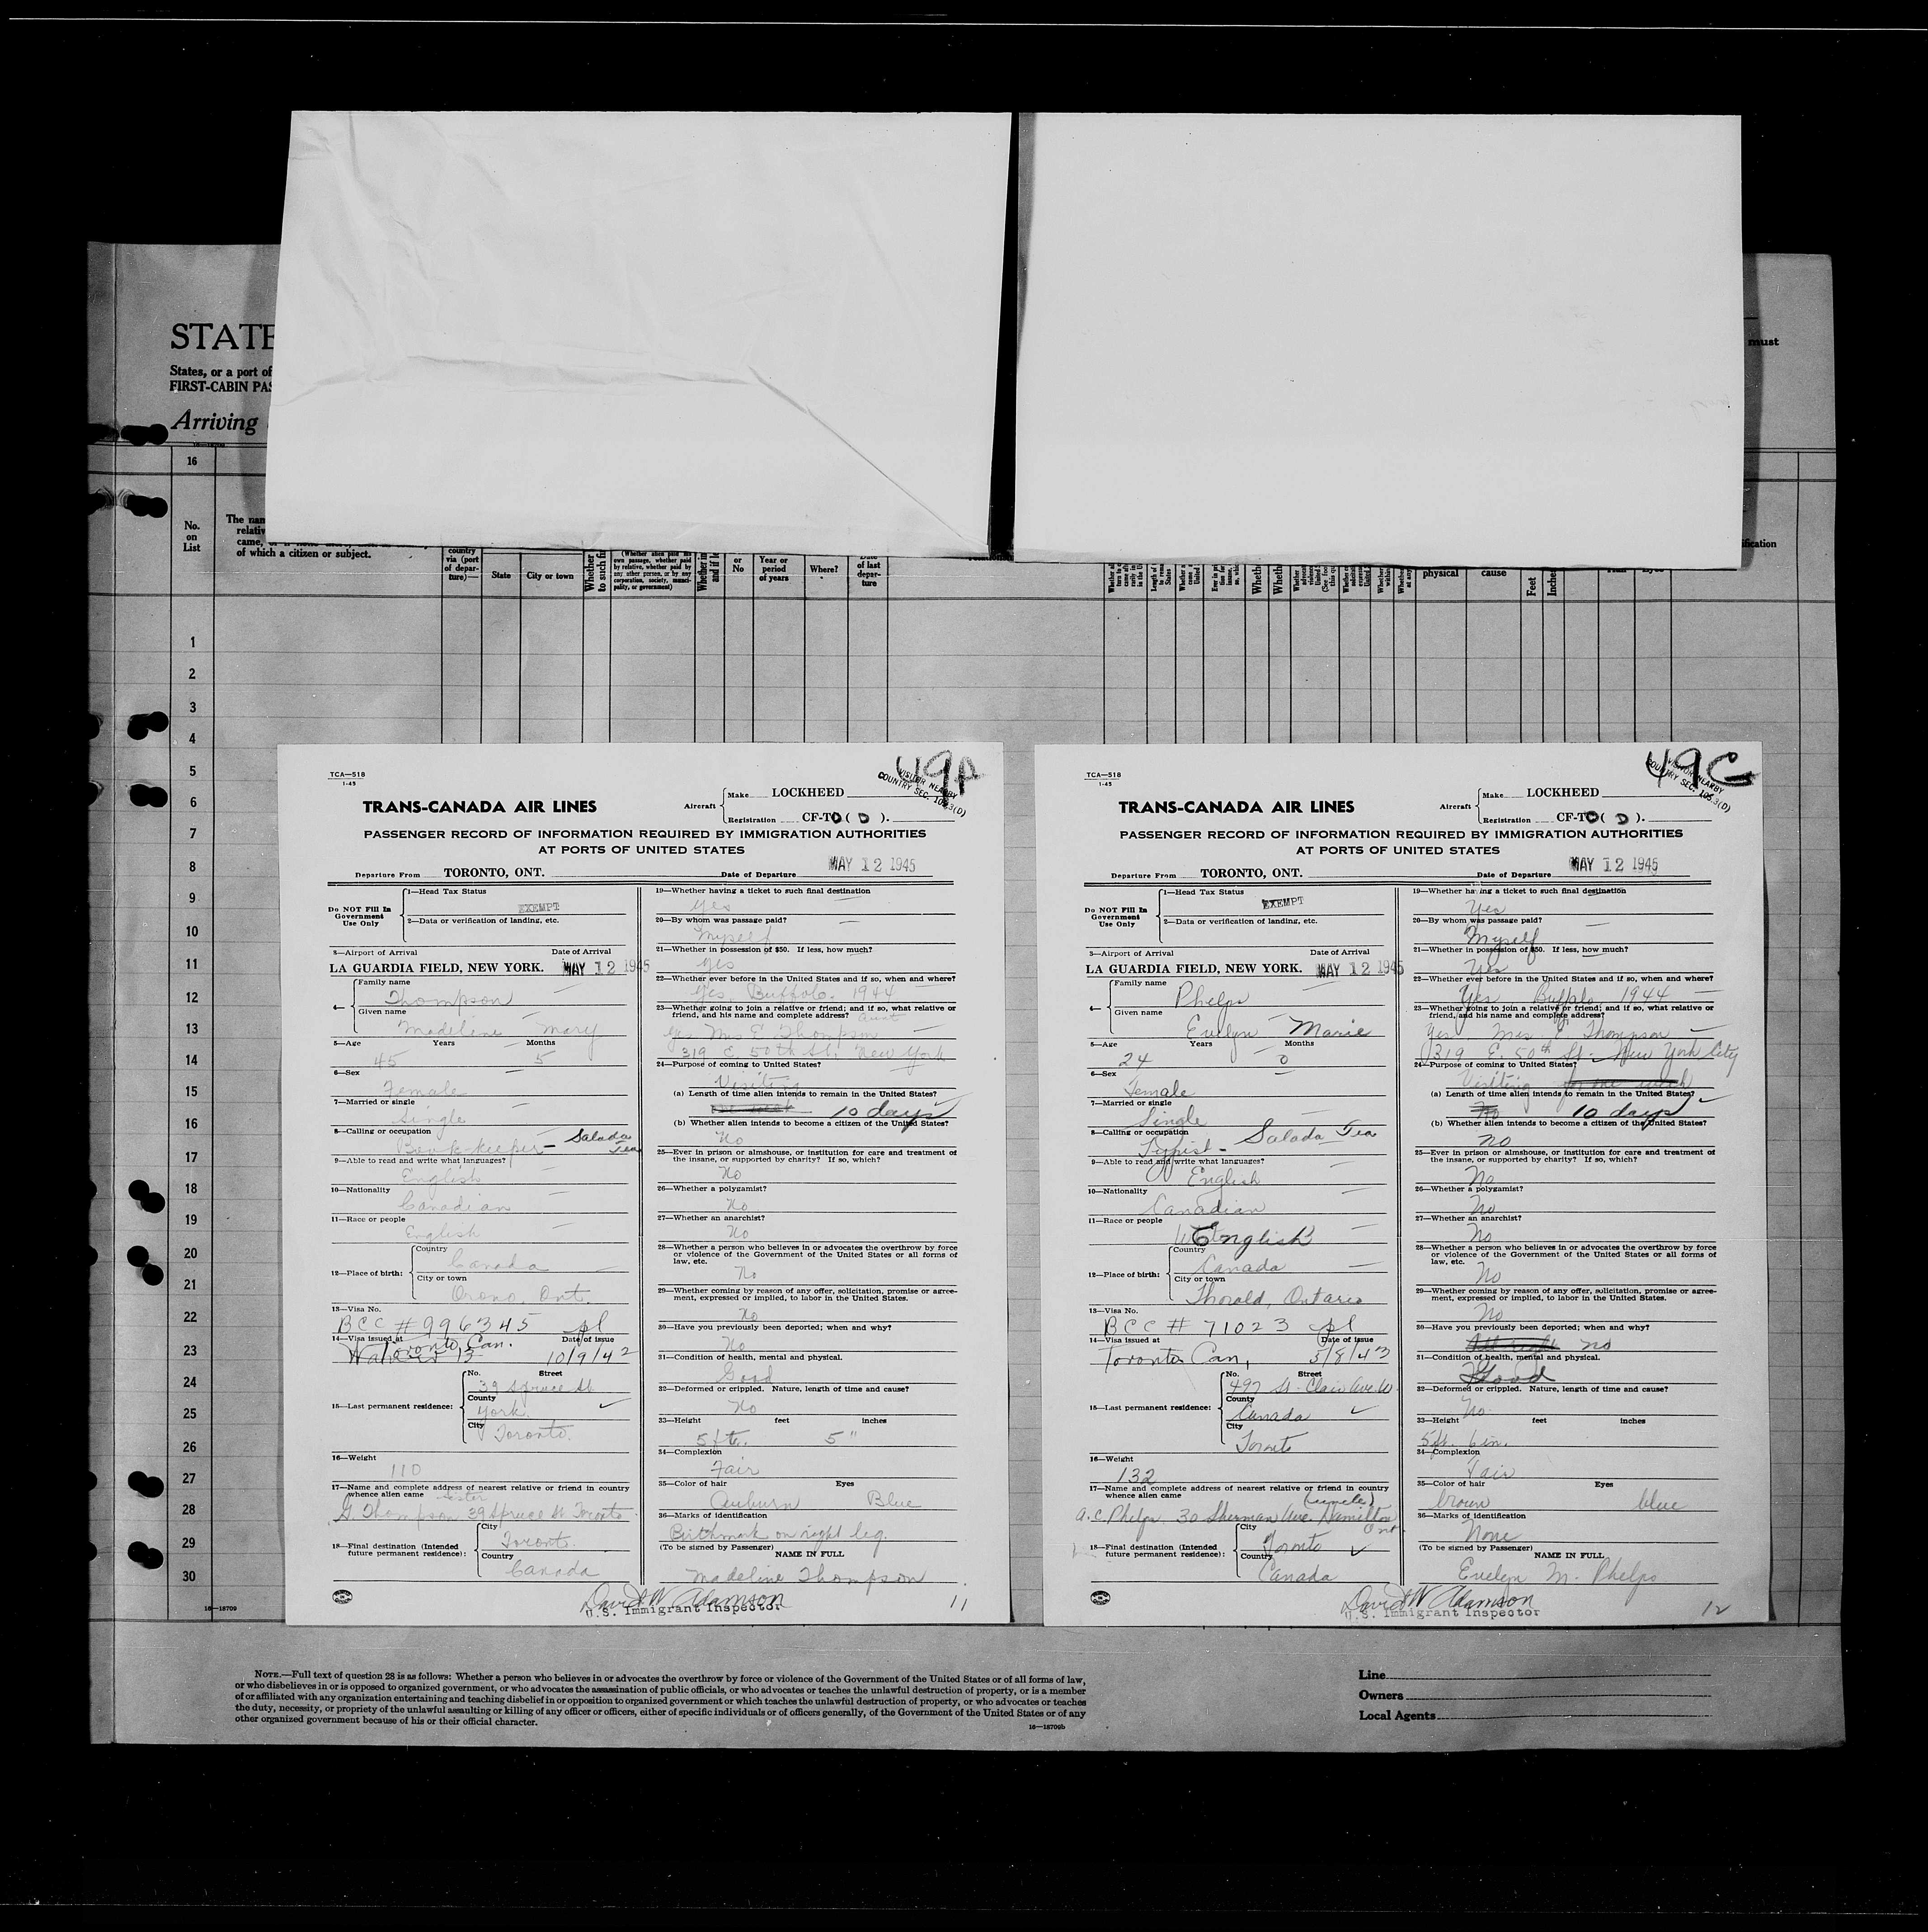 STATE
States, or a port of
FIRST-CABIN PAS
Arriving
must
16
No.
on
List
The nam
relativ
came,
of which a citizen or subject.
country
via (port
of depar-
ture)—
State
City or town
Whether
to such fi
(Whether alien paid his
own passage, whether paid
by relative, whether paid by
any other person, or by any
corporation, society, munici-
pality, or government)
or
No
Year or
period
of years
Where?
of last
depar-
ture
physical
cause
Feet
Inches
1
2
3
4
5
6
7
8
9
10
11
12
13
14
15
16
17
18
19
20
21
22
23
24
25
26
27
28
29
30
16—18709
TCA—518
1-45
49A
VISITOR NEARBY
COUNTRY SEC. 103.3(D)
TRANS-CANADA AIR LINES
Aircraft
Make LOCKHEED
Registration CF-T ( D ).
PASSENGER RECORD OF INFORMATION REQUIRED BY IMMIGRATION AUTHORITIES
AT PORTS OF UNITED STATES
Departure From TORONTO, ONT. Date of Departure MAY 12 1945
Do NOT Fill In
Government
Use Only
1—Head Tax Status
EXEMPT
2—Data or verification of landing, etc.
3—Airport of Arrival Date of Arrival
LA GUARDIA FIELD, NEW YORK. MAY 12 1945
4—
Family name
Thompson
Given name
Madeline Mary
5—Age Years Months
45 5
6—Sex
Female
7—Married or single
Single
8—Calling or occupation
Book-keeper - Salada Tea
9—Able to read and write what languages?
English
10—Nationality
Canadian
11—Race or people
English
12—Place of birth:
Country
Canada
City or town
Orono, Ont.
13—Visa No.
BCC # 996345 pl
14—Visa issued at Date of issue
Toronto, Can.
10/9/42
15—Last permanent residence:
No. Street
39 Spruce St.
County
York.
City
Toronto.
16—Weight
110
17—Name and complete address of nearest relative or friend in country
whence alien came Sister
G. Thompson 39 Spruce St Toronto.
18—Final destination (Intended
future permanent residence):
City
Toronto.
Country
Canada
19—Whether having a ticket to such final destination
yes
20—By whom was passage paid?
Myself
21—Whether in possession of $50. If less, how much?
yes
22—Whether ever before in the United States and if so, when and where?
Yes, Buffalo. 1944
23—Whether going to join a relative or friend; and if so, what relative or
friend, and his name and complete address? Aunt
Yes Mrs E. Thompson
319 E. 50th St. New York
24—Purpose of coming to United States?
Visiting
(a) Length of time alien intends to remain in the United States?
10 days
(b) Whether alien intends to become a citizen of the United States?
No
25—Ever in prison or almshouse, or institution for care and treatment of
the insane, or supported by charity? If so, which?
No
26—Whether a polygamist?
No
27—Whether an anarchist?
No
28—Whether a person who believes in or advocates the overthrow by force
or violence of the Government of the United States or all forms of
law, etc.
No
29—Whether coming by reason of any offer, solicitation, promise or agree-
ment, expressed or implied, to labor in the United States.
No
30—Have you previously been deported; when and why?
No
31—Condition of health, mental and physical.
Good
32—Deformed or crippled. Nature, length of time and cause?
No
33—Height feet inches
5 ft. 5"
34—Complexion
Fair
35—Color of hair Eyes
Auburn Blue
36—Marks of identification
Birthmark on right leg.
(To be signed by Passenger)
NAME IN FULL
Madeline Thompson
David W Adamson
U.S. Immigrant Inspector
11
TCA—518
1-45
49C
VISITOR NEARBY
COUNTRY SEC. 103.3(D)
TRANS-CANADA AIR LINES
Aircraft
Make LOCKHEED
Registration CF-T ( D ).
PASSENGER RECORD OF INFORMATION REQUIRED BY IMMIGRATION AUTHORITIES
AT PORTS OF UNITED STATES
Departure From TORONTO, ONT. Date of Departure MAY 12 1945
Do NOT Fill In
Government
Use Only
1—Head Tax Status
EXEMPT
2—Data or verification of landing, etc.
3—Airport of Arrival Date of Arrival
LA GUARDIA FIELD, NEW YORK. MAY 12 1945
4—
Family name
Phelps
Given name
Evelyn Marie
5—Age Years Months
24 0
6—Sex
Female
7—Married or single
Single
8—Calling or occupation
Typist - Salada Tea
9—Able to read and write what languages?
English
10—Nationality
Canadian
11—Race or people
English
12—Place of birth:
Country
Canada
City or town
Thorold, Ontario
13—Visa No.
BCC # 71023 pl
14—Visa issued at Date of issue
Toronto Can, 3/8/43
15—Last permanent residence:
No. Street
497 St. Clair Ave. W
County
Canada
City
Toronto
16—Weight
132
17—Name and complete address of nearest relative or friend in country
whence alien came (uncle)
A. C. Phelps 30 Sherman Ave. Hamilton Ont.
18—Final destination (Intended
future permanent residence):
City
Toronto
Country
Canada
19—Whether having a ticket to such final destination
Yes
20—By whom was passage paid?
Myself
21—Whether in possession of $50. If less, how much?
Yes
22—Whether ever before in the United States and if so, when and where?
Yes Buffalo 1944
23—Whether going to join a relative or friend; and if so, what relative or
friend, and his name and complete address?
Yes. Mrs E Thompson
319 E. 50th St. New York City
24—Purpose of coming to United States?
Visiting for one week
(a) Length of time alien intends to remain in the United States?
No 10 days
(b) Whether alien intends to become a citizen of the United States?
no
25—Ever in prison or almshouse, or institution for care and treatment of
the insane, or supported by charity? If so, which?
No
26—Whether a polygamist?
No
27—Whether an anarchist?
No
28—Whether a person who believes in or advocates the overthrow by force
or violence of the Government of the United States or all forms of
law, etc.
No
29—Whether coming by reason of any offer, solicitation, promise or agree-
ment, expressed or implied, to labor in the United States.
No
30—Have you previously been deported; when and why?
no
31—Condition of health, mental and physical.
Good
32—Deformed or crippled. Nature, length of time and cause?
No.
33—Height feet inches
5 ft. 6 in.
34—Complexion
Fair
35—Color of hair Eyes
brown blue
36—Marks of identification
None
(To be signed by Passenger)
NAME IN FULL
Evelyn M. Phelps
David W Adamson
U.S. Immigrant Inspector
12
NOTE.—Full text of question 28 is as follows: Whether a person who believes in or advocates the overthrow by force or violence of the Government of the United States or of all forms of law,
or who disbelieves in or is opposed to organized government, or who advocates the assassination of public officials, or who advocates or teaches the unlawful destruction of property, or is a member
of or affiliated with any organization entertaining and teaching disbelief in or opposition to organized government or which teaches the unlawful destruction of property, or who advocates or teaches
the duty, necessity, or propriety of the unlawful assaulting or killing of any officer or officers, either of specific individuals or of officers generally, of the Government of the United States or of any
other organized government because of his or their official character.
16—18709b
Line
Owners
Local Agents